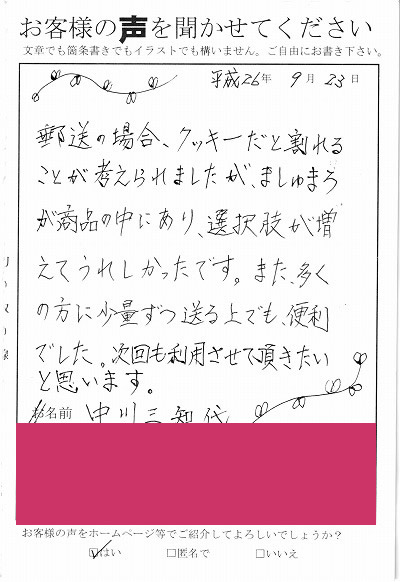 お客様の声を聞かせてください
文章でも箇条書きでもイラストでも構いません。ご自由にお書き下さい。
平成26年 9月 23日
郵送の場合、クッキーだと割れる
ことが考えられましたが、ましゅまろ
が商品の中にあり、選択肢が増
えてうれしかったです。また、多く
の方に少量ずつ送る上でも、便利
でした。次回も利用させて頂きたい
と思います。
お名前 中川三知代
お客様の声をホームページ等でご紹介してよろしいでしょうか?
☑はい □匿名で □いいえ